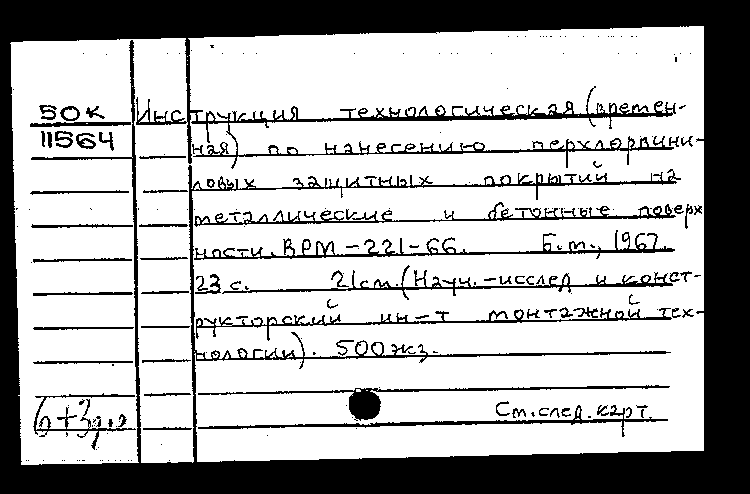 50к Инструкция технологическая (времен-
11564 ная) по нанесению перхлорвини-
ловых защитных покрытий на
металлические и бетонные поверх
ности. ВРМ-221-66. Б.м., 1967.
23 с. 21см. (Науч.-исслед и конст-
рукторский ин-т монтажной тех-
нологии). 500экз.
Ст. след. карт.